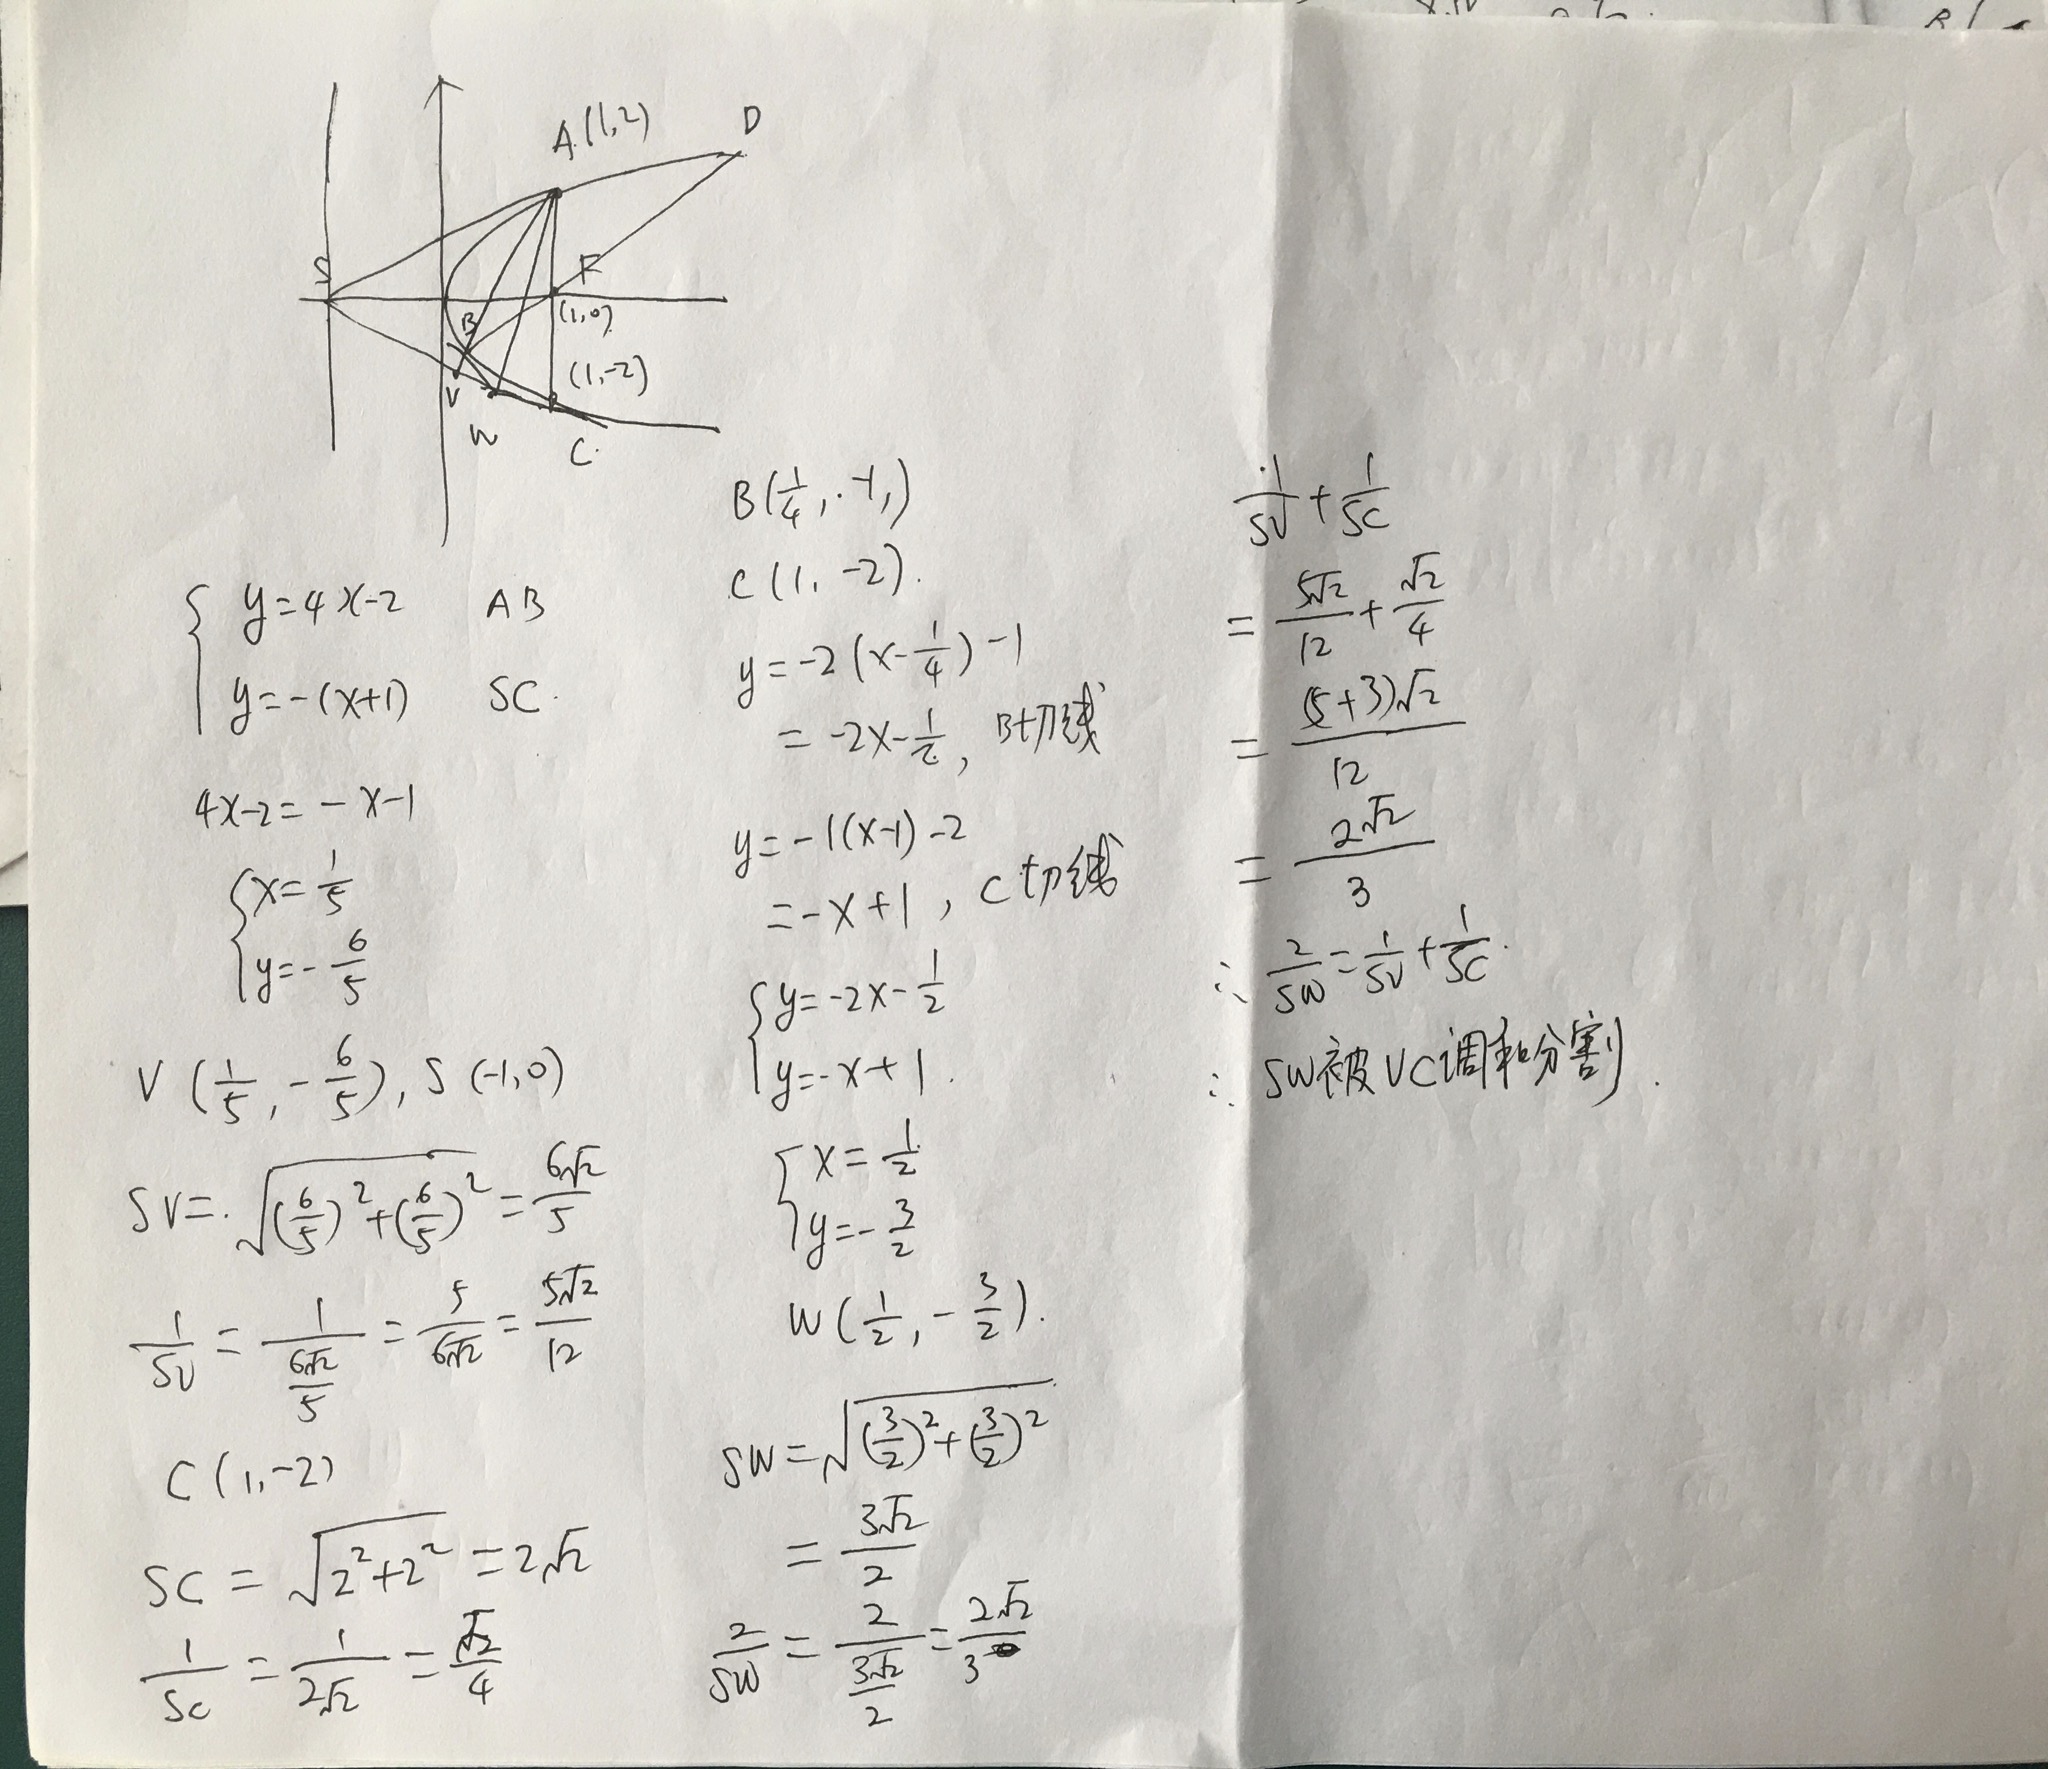 A.(1,2)
D
S
F
(1,0)
B
(1,-2)
V
W
C.
{ y=4x-2 AB
y=-(x+1) SC.
4x-2=-x-1
{ x=1/5
y=-6/5
V(1/5,-6/5), S(-1,0)
SV=.√((6/5)²+(6/5)²)=6√2/5
1/SV=1/(6√2/5)=5/(6√2)=5√2/12
C(1,-2)
SC=√(2²+2²)=2√2
1/SC=1/(2√2)=√2/4
B(1/4,.-1,)
C(1,-2).
y=-2(x-1/4)-1
=-2x-1/2, B切线
y=-1(x-1)-2
=-x+1, C切线
{ y=-2x-1/2
y=-x+1.
{ x=1/2
y=-3/2
W(1/2,-3/2).
SW=√((3/2)²+(3/2)²)
=3√2/2
2/SW=2/(3√2/2)=2√2/3
1/SV+1/SC
=5√2/12+√2/4
=(5+3)√2/12
=2√2/3
∴ 2/SW=1/SV+1/SC.
∴ SW被VC调和分割.